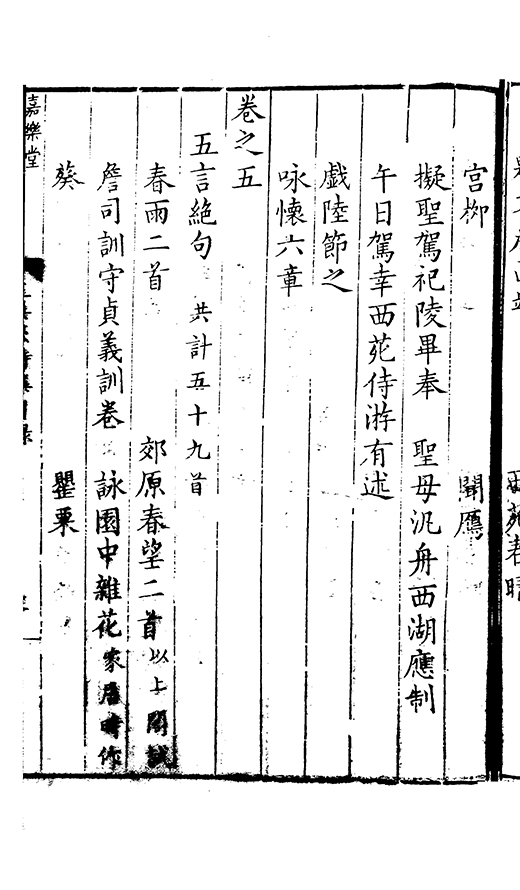 西苑春晴
宮栁　聞鴈
擬聖駕祀陵畢奉　聖母汎舟西湖應制
午日駕幸西苑侍游有述
戲陸節之
咏懷六章
卷之五
五言絕句　共計五十九首
春雨二首　郊原春望二首以上閣試
詹司訓守貞義訓卷　詠園中雜花家居時作
葵　罌粟
嘉樂堂